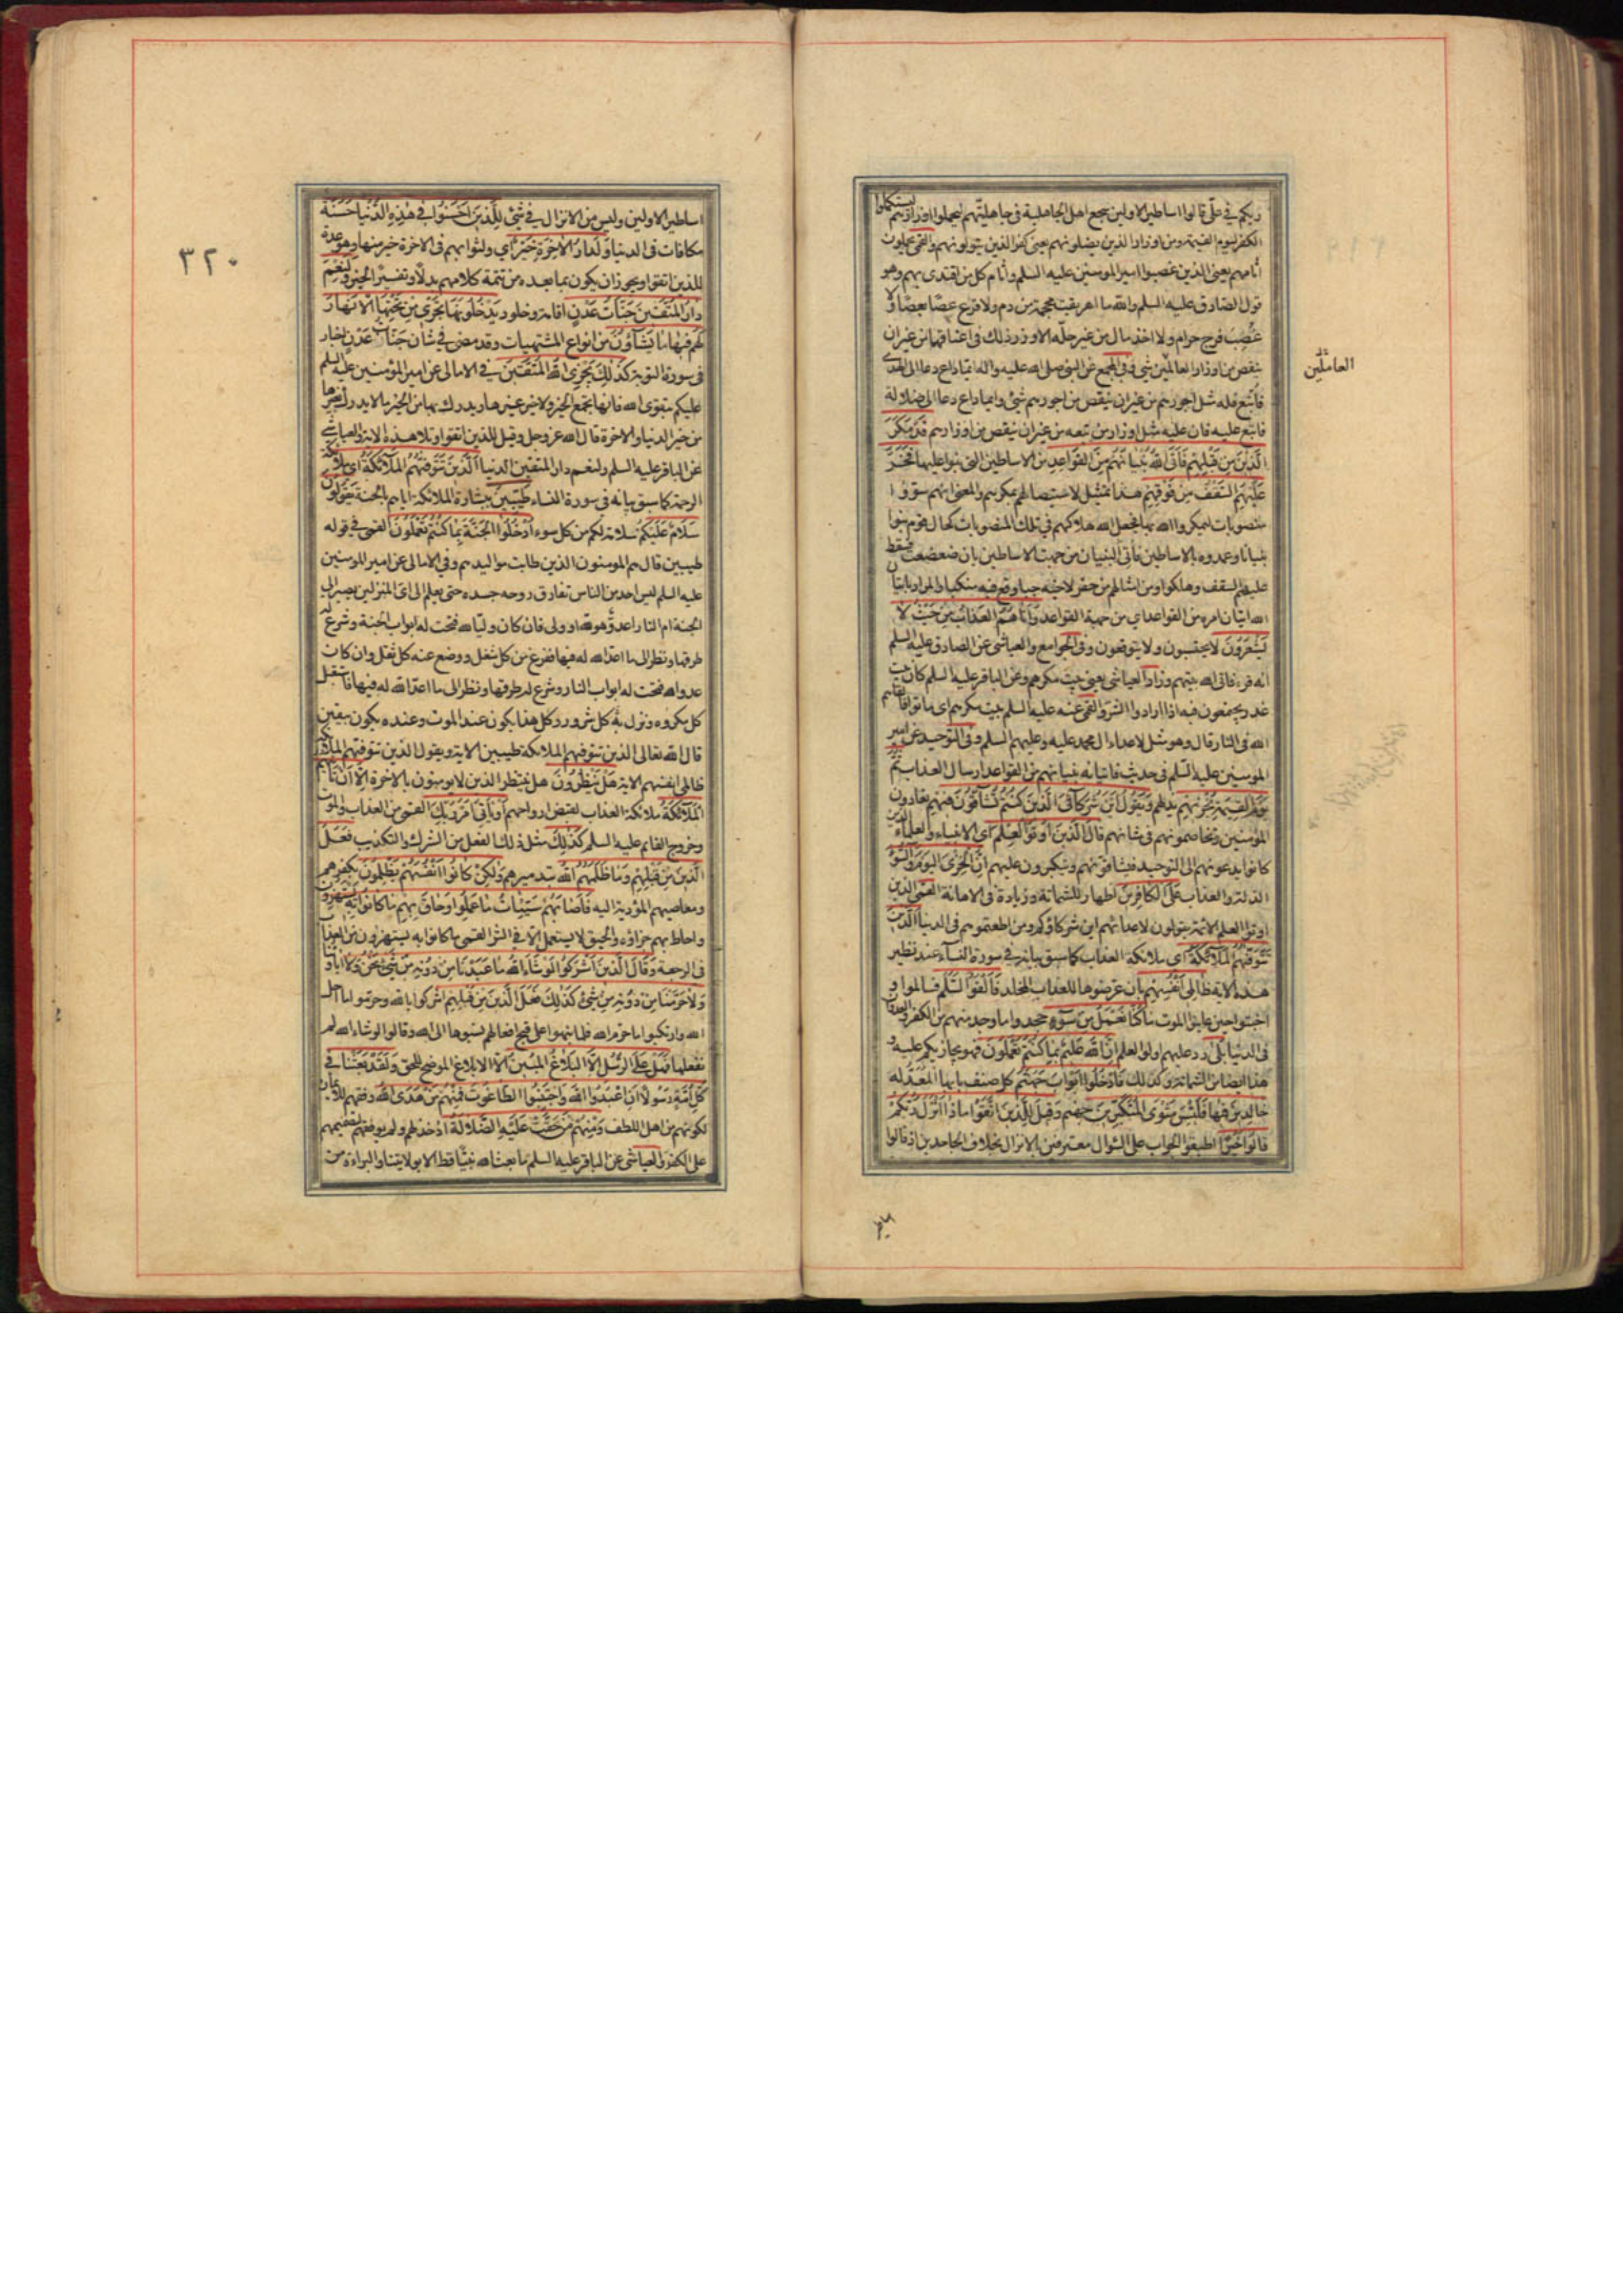 ربكم في علي قالوا اساطير الاولين سجع اهل الجاهلية في جاهليتهم ليحملوا اوزارهم ليستكملوا
الكفر ليوم القيمة ومن اوزار الذين يضلونهم يعني كفر الذين يتولونهم والقمي يحملون
اثامهم يعني الذين غصبوا امير المومنين عليه السلم واثام كل من اقتدى بهم وهو
قول الصادق عليه السلم والله ما اهريقت محجمة من دم ولا قرع عصا بعصا ولا
غصب فرج حرام ولا اخذ مال من غير حله الا وزر ذلك في اعناقهما من غير ان
ينقص من اوزار العالمين شي وفي المجمع عن النبي صلى الله عليه واله ايما داع دعا الى الهدى
فاتبع فله مثل اجورهم من غير ان ينقص من اجورهم شي وايما داع دعا الى ضلالة
فاتبع عليه فان عليه مثل اوزار من تبعه من غير ان ينقص من اوزارهم قَدْ مَكَرَ
الَّذينَ مِنْ قَبْلِهِمْ فَاَتَى اللّٰهُ بُنْيانَهُمْ مِنَ القَواعِدِ من الاساطين التي بنوا عليها فَخَرَّ
عَلَيْهِمُ السَّقْفُ مِنْ فَوْقِهِمْ هذا تمثيل لاستيصالهم بمكرهم والمعنى انهم سووا
منصوبات ليمكروا الله بها فجعل الله هلاكهم في تلك المنصوبات كحال قوم بنوا
بنيانا وعمدوه بالاساطين فاتى البنيان من جهة الاساطين بان ضعضعت فسقط
عليهم السقف وهلكوا ومن امثالهم من حفر لاخيه جبا وقع فيه منكبا والمراد باتيان
الله اتيان امره من القواعد اي من جهة القواعد وَاَتاهُمُ العَذابُ مِنْ حَيْثُ لا
يَشْعُرُونَ لا يحتسبون ولا يتوقعون وفي الجوامع والعياشي عن الصادق عليه السلم
انه قرء فاتى الله بيتهم وزاد العياشي يعني بيت مكرهم وعن الباقر عليه السلم كان بيت
غدر يجتمعون فيه اذا ارادوا الشر والقمي عنه عليه السلم بيت مكرهم اي ماتوا فالقاهم
الله في النار قال وهو مثل لاعداء ال محمد عليه وعليهم السلم وفي التوحيد عن امير
المومنين عليه السلم في حديث فاتيانه بنيانهم من القواعد ارسال العذاب ثُمَّ
يَوْمَ القِيٰمَةِ يُخْزيهِمْ يذلهم وَيَقُولُ اَيْنَ شُرَكآءِيَ الَّذينَ كُنْتُمْ تُشآقُّونَ فيهِمْ تعادون
المؤمنين وتخاصمونهم في شانهم قالَ الَّذينَ اُوتُوا العِلْمَ اي الانبياء والعلماء الذين
كانوا يدعونهم الى التوحيد فيشاقونهم ويتكبرون عليهم اِنَّ الخِزْيَ اليَوْمَ وَالسُّوءَ
الذلة والعذاب عَلَى الكافِرينَ اظهار للشماتة وزيادة في الاهانة القمي الذين
اوتوا العلم الائمة يقولون لاعدائهم اين شركاؤكم ومن اطعتموهم في الدنيا الَّذينَ
تَتَوَفّٰيهُمُ المَلآئِكَةُ اي ملائكة العذاب كما سبق بيانه في سورة النساء عند نظير
هذه الاية ظالِمي اَنْفُسِهِمْ بان عرضوها للعذاب المخلد فَاَلْقَوُا السَّلَمَ فسالموا و
اخبتوا حين عاينوا الموت ما كُنّا نَعْمَلُ مِنْ سُوءٍ جحدوا ما وجد منهم من الكفر والعدوان
في الدنيا بَلٰى رد عليهم اولوا العلم اِنَّ اللّٰهَ عَليمٌ بِما كُنْتُمْ تَعْمَلُونَ فهو يجازيكم عليه و
هذا ايضا من الشماتة وكذلك فَادْخُلُوا اَبْوابَ جَهَنَّمَ كل صنف بابها المعد له
خالِدينَ فيها فَلَبِئْسَ مَثْوَى المُتَكَبِّرينَ جهنم وَقيلَ لِلَّذينَ اتَّقَوْا ماذا اَنْزَلَ رَبُّكُمْ
قالُوا خَيْرًا اطبقوا الجواب على السوال معترفين بالانزال بخلاف الجاحدين اذ قالوا
العاملين
اساطير الاولين وليس من الانزال في شئ لِلَّذينَ اَحْسَنُوا في هٰذِهِ الدُّنْيا حَسَنَةٌ
مكافات في الدنيا وَلَدارُ الاٰخِرَةِ خَيْرٌ اي ولثوابهم في الاخرة خير منها وهو عدة
للذين اتقوا ويجوز ان يكون بما بعده من تتمة كلامهم بدلا وتفسيرا لخير وَلَنِعْمَ
دارُ المُتَّقينَ جَنّاتُ عَدْنٍ اقامة وخلود يَدْخُلُونَها تَجْري مِنْ تَحْتِهَا الاَنْهارُ
لَهُمْ فيها ما يَشآؤُنَ من انواع المشتهيات وقد مضى في شان جَنّات عَدْن اخبار
في سورة التوبة كَذٰلِكَ يَجْزِي اللّٰهُ المُتَّقينَ في الامالي عن امير المؤمنين عليه السلم
عليكم بتقوى الله فانها تجمع الخير ولا خير غيرها ويدرك بها من الخير ما لا يدرك بغيرها
من خير الدنيا والاخرة قال الله عز وجل وقيل للذين اتقوا وتلا هذه الاية والعياشي
عن الباقر عليه السلم ولنعم دار المتقين الدنيا الَّذينَ تَتَوَفّٰيهُمُ المَلآئِكَةُ اي ملائكة
الرحمة كما سبق بيانه في سورة النساء طَيِّبينَ ببشارة الملائكة اياهم بالجنة يَقُولُونَ
سَلامٌ عَلَيْكُمْ سلامة لكم من كل سوء اُدْخُلُوا الجَنَّةَ بِما كُنْتُمْ تَعْمَلُونَ القمي في قوله
طيبين قال هم المومنون الذين طابت مواليدهم وفي الامالي عن امير المومنين
عليه السلم ليس احد من الناس تفارق روحه جسده حتى يعلم الى اي المنزلين يصير الى
الجنة ام النار اعدو هو لله او ولي فان كان وليا لله فتحت له ابواب الجنة وشرع له
طرقها ونظر الى ما اعد الله له فيها ففرغ من كل شغل ووضع عنه كل ثقل وان كان
عدوا لله فتحت له ابواب النار وشرع له طرقها ونظر الى ما اعد الله له فيها فاستقبل
كل مكروه ونزل به كل شرور وكل هذا يكون عند الموت وعنده يكون بيقين
قال الله تعالى الذين تتوفيهم الملائكة طيبين الاية ويقول الذين تتوفيهم الملائكة
ظالمي انفسهم الاية هَلْ يَنْظُرُونَ هل ينتظر الذين لا يومنون بالاخرة اِلاّ اَنْ تَأْتِيَهُمُ
المَلآئِكَةُ ملائكة العذاب لقبض ارواحهم اَوْ يَأْتِيَ اَمْرُ رَبِّكَ القمي من العذاب والموت
وخروج القائم عليه السلم كَذٰلِكَ مثل ذلك الفعل من الشرك والتكذيب فَعَلَ
الَّذينَ مِنْ قَبْلِهِمْ وَما ظَلَمَهُمُ اللّٰهُ بتدميرهم وَلٰكِنْ كانُوا اَنْفُسَهُمْ يَظْلِمُونَ بكفرهم
ومعاصيهم المؤدية اليه فَاَصابَهُمْ سَيِّئاتُ ما عَمِلُوا وَحاقَ بِهِمْ ما كانُوا بِهِ يَسْتَهْزِؤُنَ
واحاط بهم جزاؤه والحيق لا يستعمل الا في الشر القمي ما كانوا به يستهزون من العذاب
في الرجعة وَقالَ الَّذينَ اَشْرَكُوا لَوْ شآءَ اللّٰهُ ما عَبَدْنا مِنْ دُونِهِ مِنْ شَيْءٍ نَحْنُ وَلا اٰباؤُنا
وَلا حَرَّمْنا مِنْ دُونِهِ مِنْ شَيْءٍ كَذٰلِكَ فَعَلَ الَّذينَ مِنْ قَبْلِهِمْ اشركوا بالله وحرموا ما احل
الله وارتكبوا ما حرم الله فلما نبهوا على قبح افعالهم نسبوها الى الله وقالوا لو شاء الله لم
نفعلها فَهَلْ عَلَى الرُّسُلِ اِلاَّ البَلاغُ المُبينُ الا الابلاغ الموضح للحق وَلَقَدْ بَعَثْنا في
كُلِّ اُمَّةٍ رَسُولاً اَنِ اعْبُدُوا اللّٰهَ وَاجْتَنِبُوا الطّاغُوتَ فَمِنْهُمْ مَنْ هَدَى اللّٰهُ وفقهم للايمان
لكونهم من اهل اللطف وَمِنْهُمْ مَنْ حَقَّتْ عَلَيْهِ الضَّلالَةُ اذ خذلهم ولم يوفقهم لتصميمهم
على الكفر والعياشي عن الباقر عليه السلم ما بعث الله نبيا قط الا بولايتنا والبراءة من
٣٢٠